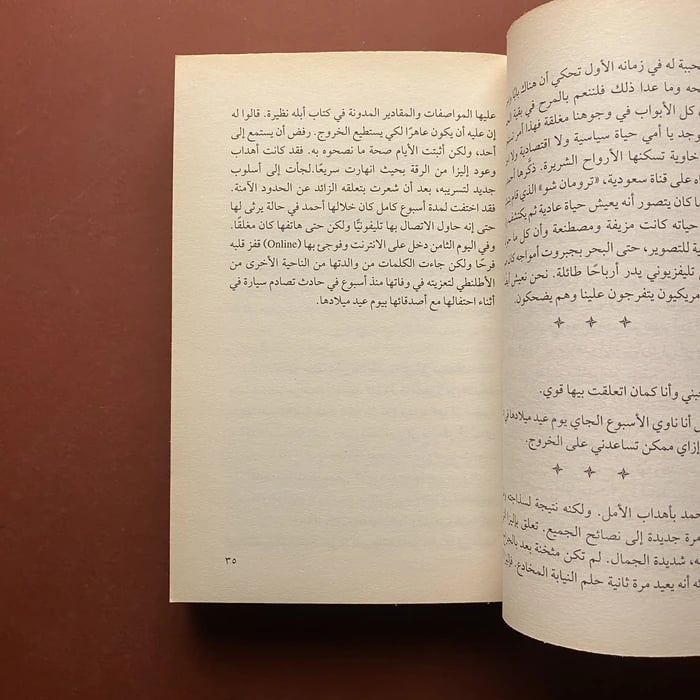 حببة له في زمانه الأول تحكي أن هناك
حه وما عدا ذلك فلتنعم بالمرح في بقية
ن كل الأبواب في وجوهنا مغلقة فهذا أمر
وجد يا أمي حياة سياسية ولا اقتصادية ولا
خاوية تسكنها الأرواح الشريرة. ذكَّرها
اه على قناة سعودية، «ترومان شو» الذي قام
ما كان يتصور أنه يعيش حياة عادية ثم يكتشف
حياته كانت مزيفة ومصطنعة وأن كل ما
ية للتصوير، حتى البحر بجبروت أمواجه كان
ج تليفزيوني يدر أرباحًا طائلة. نحن نعيش
مريكيون يتفرجون علينا وهم يضحكون.
حبني وأنا كمان اتعلقت بيها قوي.
ل أنا ناوي الأسبوع الجاي يوم عيد ميلادها
إزاي ممكن تساعدني على الخروج.
حمد بأهداب الأمل. ولكنه نتيجة لسذاجته
مرة جديدة إلى نصائح الجميع. تعلق بإليزا
ه، شديدة الجمال. لم تكن مثخنة بعد
ئه أنه يعيد مرة ثانية حلم النيابة المخادع.
عليها المواصفات والمقادير المدونة في كتاب أبله نظيرة. قالوا له
إن عليه أن يكون عاهرًا لكي يستطيع الخروج. رفض أن يستمع إلى
أحد، ولكن أثبتت الأيام صحة ما نصحوه به. فقد كانت أهداب
وعود إليزا من الرقة بحيث انهارت سريعًا.لجأت إلى أسلوب
جديد لتسريبه، بعد أن شعرت بتعلقه الزائد عن الحدود الآمنة.
فقد اختفت لمدة أسبوع كامل كان خلالها أحمد في حالة يرثى لها
حتى إنه حاول الاتصال بها تليفونيًّا ولكن حتى هاتفها كان مغلقًا.
وفي اليوم الثامن دخل على الانترنت وفوجئ بها (Online) قفز قلبه
فرحًا ولكن جاءت الكلمات من والدتها من الناحية الأخرى من
الأطلنطي لتعزيته في وفاتها منذ أسبوع في حادث تصادم سيارة في
أثناء احتفالها مع أصدقائها بيوم عيد ميلادها.
٣٥